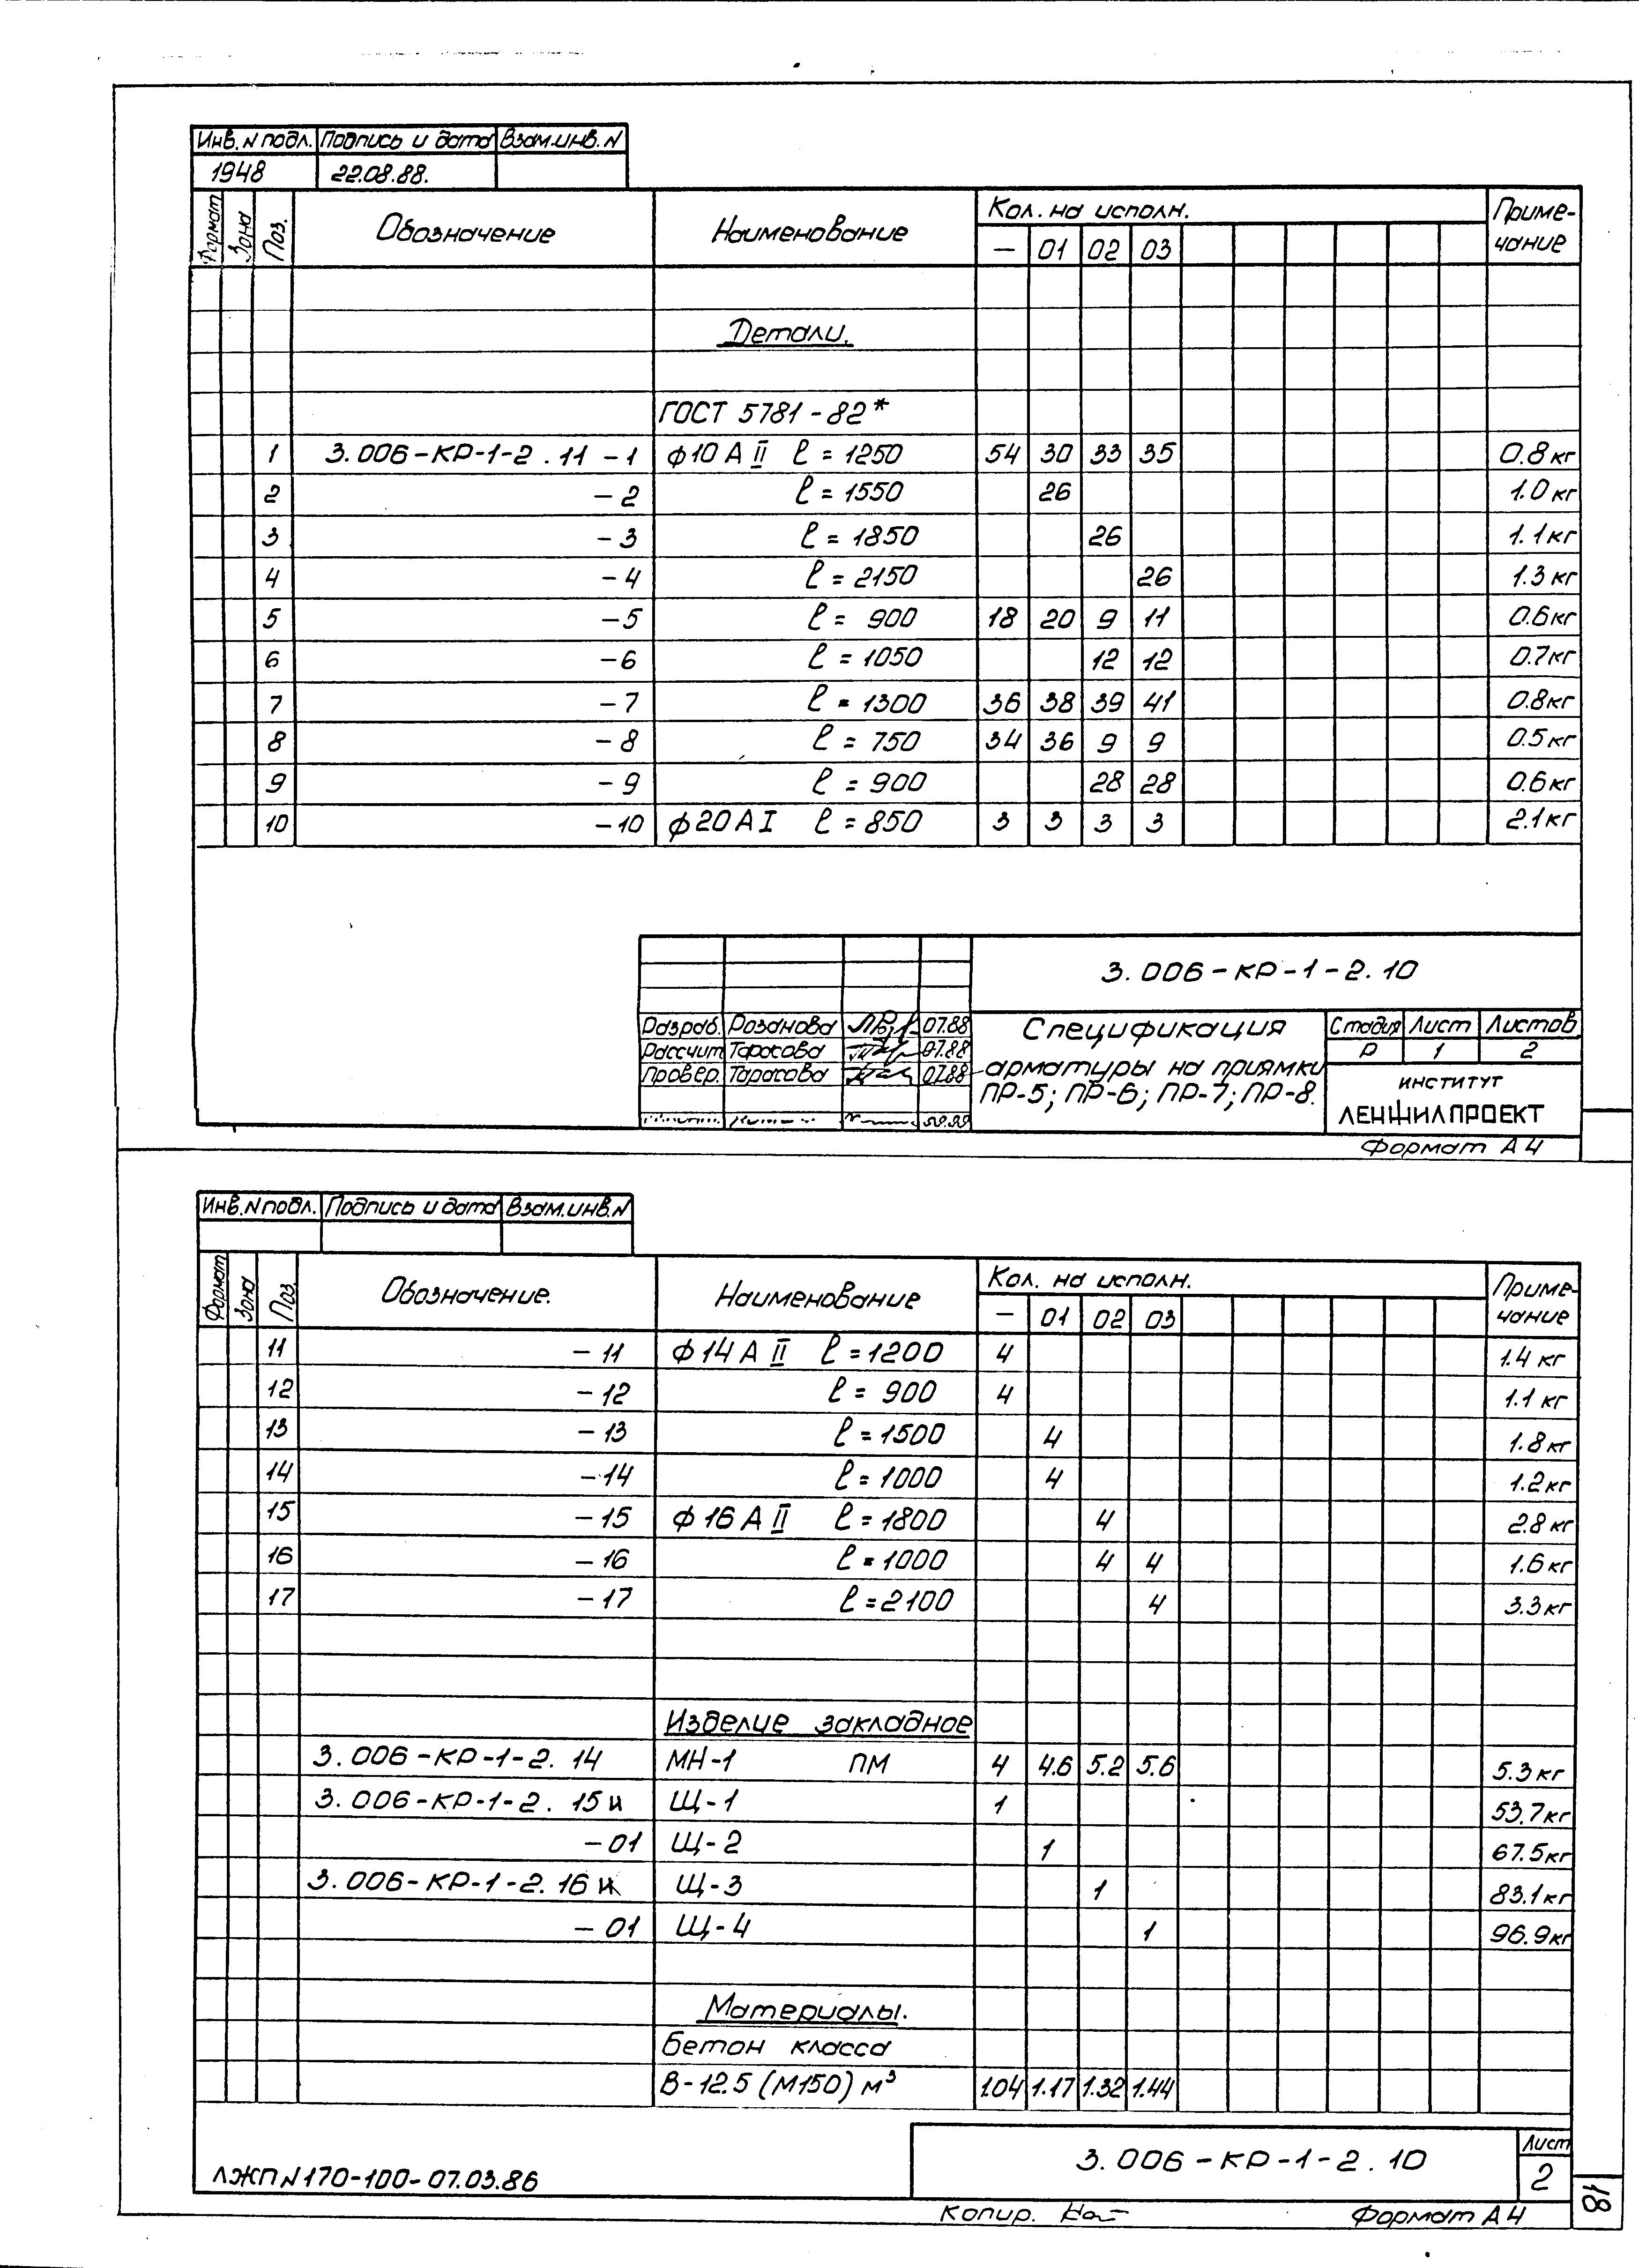 Инв.N подл. Подпись и дата Взам.инв.N
1948 22.08.88.
Формат Зона Поз. Обозначение Наименование Кол. на исполн. Приме-
— 01 02 03 чание
Детали.
ГОСТ 5781-82*
1 3.006-КР-1-2.11 -1 ф10 А II ℓ = 1250 54 30 33 35 0.8 кг
2 -2 ℓ = 1550 26 1.0 кг
3 -3 ℓ = 1850 26 1.1 кг
4 -4 ℓ = 2150 26 1.3 кг
5 -5 ℓ = 900 18 20 9 11 0.6 кг
6 -6 ℓ = 1050 12 12 0.7 кг
7 -7 ℓ = 1300 36 38 39 41 0.8 кг
8 -8 ℓ = 750 34 36 9 9 0.5 кг
9 -9 ℓ = 900 28 28 0.6 кг
10 -10 ф20 А I ℓ = 850 3 3 3 3 2.1 кг
3.006-КР-1-2.10
Разраб. Розанова 07.88 Спецификация Стадия Лист Листов
Рассчит Тарасова 07.88 арматуры на приямки Р 1 2
Провер. Тарасова 07.88 ПР-5; ПР-6; ПР-7; ПР-8.
ИНСТИТУТ
ЛЕНЖИЛПРОЕКТ
Формат А4
Инв.N подл. Подпись и дата Взам.инв.N
Формат Зона Поз. Обозначение. Наименование Кол. на исполн. Приме-
— 01 02 03 чание
11 -11 ф14 А II ℓ = 1200 4 1.4 кг
12 -12 ℓ = 900 4 1.1 кг
13 -13 ℓ = 1500 4 1.8 кг
14 -14 ℓ = 1000 4 1.2 кг
15 -15 ф16 А II ℓ = 1800 4 2.8 кг
16 -16 ℓ = 1000 4 4 1.6 кг
17 -17 ℓ = 2100 4 3.3 кг
Изделие закладное
3.006-КР-1-2.14 МН-1 ПМ 4 4.6 5.2 5.6 5.3 кг
3.006-КР-1-2.15и Щ-1 1 53.7 кг
-01 Щ-2 1 67.5 кг
3.006-КР-1-2.16и Щ-3 1 83.1 кг
-01 Щ-4 1 96.9 кг
Материалы.
Бетон класса
В-12.5 (М150) м³ 1.04 1.17 1.32 1.44
3.006-КР-1-2.10 Лист
2
ЛЖП N 170-100-07.03.86
Копир. Формат А4
18